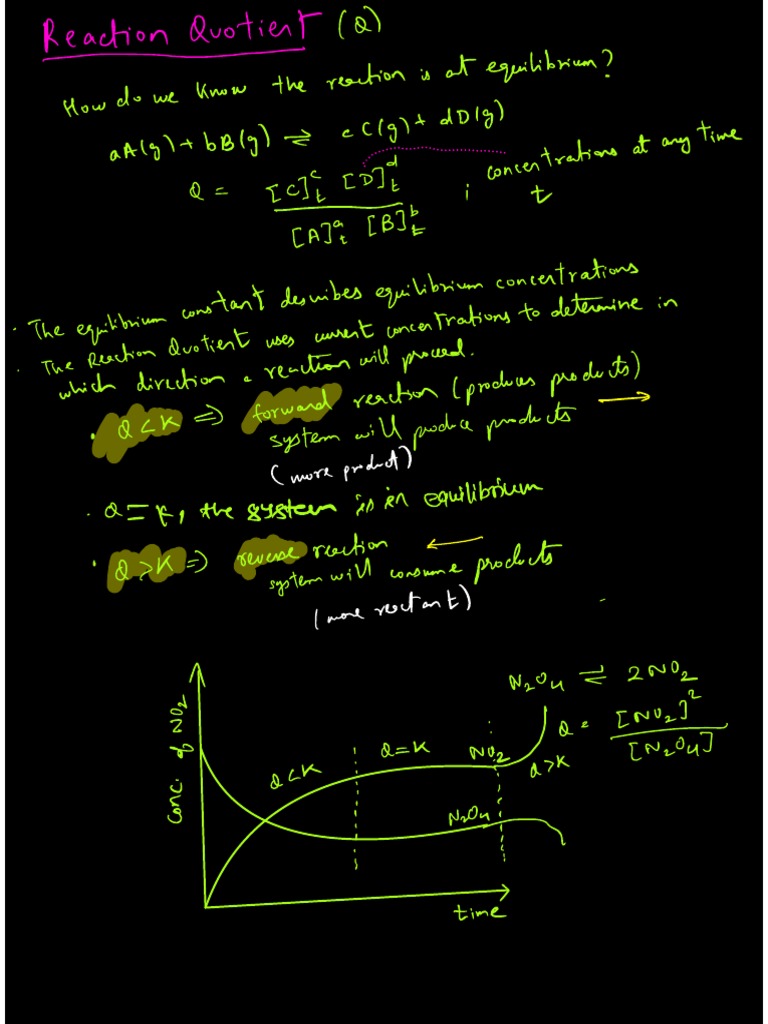 Reaction Quotient (Q)
How do we know the reaction is at equilibrium?
aA(g) + bB(g) ⇌ cC(g) + dD(g)
Q = [C]ᶜₜ [D]ᵈₜ / [A]ᵃₜ [B]ᵇₜ ; concentrations at any time t
· The equilibrium constant describes equilibrium concentrations
· The Reaction Quotient uses current concentrations to determine in
which direction a reaction will proceed.
· Q < K ⇒ forward reaction (produces products) →
system will produce products
(more product)
· Q = K, the system is in equilibrium
· Q > K ⇒ reverse reaction ←
system will consume products
(more reactant)
N₂O₄ ⇌ 2NO₂
Q = [NO₂]² / [N₂O₄]
Conc. of NO₂
Q < K
Q = K
NO₂
Q > K
N₂O₄
time